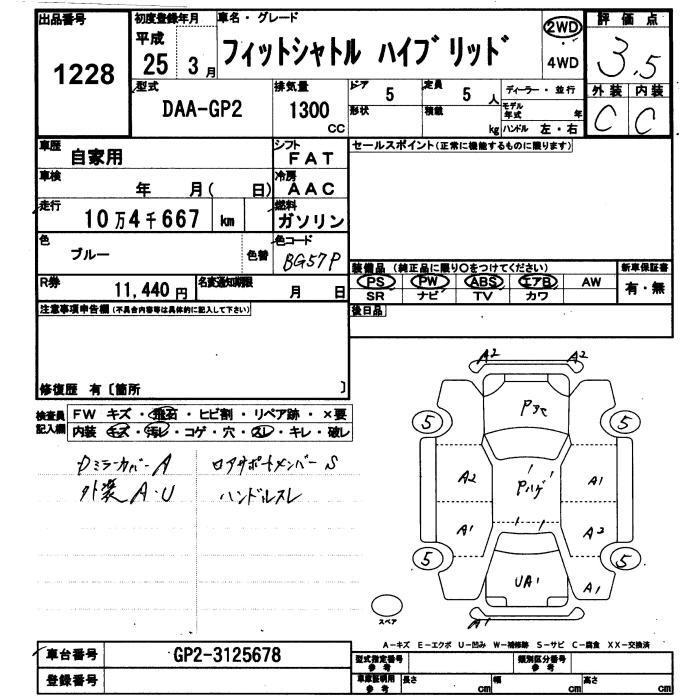 出品番号 初度登録年月 車名・グレード 評価点
1228 平成 25 3月 フィットシャトル ハイブリッド 2WD 4WD 3.5
型式 排気量 ドア 定員 ディーラー・並行 外装 内装
DAA-GP2 1300 CC 5 5 人 モデル年式 年 C C
形状 積載 kg ハンドル 左・右
車歴 自家用 シフト FAT セールスポイント(正常に機能するものに限ります)
車検 年 月( 日) 冷房 AAC
走行 10万4千667 km 燃料 ガソリン
色 ブルー 色替 色コード BG57P
装備品 (純正品に限り○をつけてください) 新車保証書
R券 11,440円 名変通知期限 月 日 PS PW ABS エアB AW 有・無
SR ナビ TV カワ
注意事項申告欄(不具合内容等は具体的に記入して下さい) 後日品
修復歴 有〔箇所 〕
検査員記入欄 FW キズ・飛石・ヒビ割・リペア跡・×要
内装 キズ・汚レ・コゲ・穴・スレ・キレ・破レ
Dミラーカバー A ロアサポートメンバー S
外装 A・U ハンドルスレ
A2 A2
Pアセ
5 5
A2 Pハゲ A1
A1 A2
5 5
UA1 A1
A1
スペア
A-キズ E-エクボ U-凹み W-補修跡 S-サビ C-腐食 XX-交換済
車台番号 GP2-3125678 型式指定番号 参考 類別区分番号 参考
登録番号 車庫証明用 参考 長さ cm 幅 cm 高さ cm